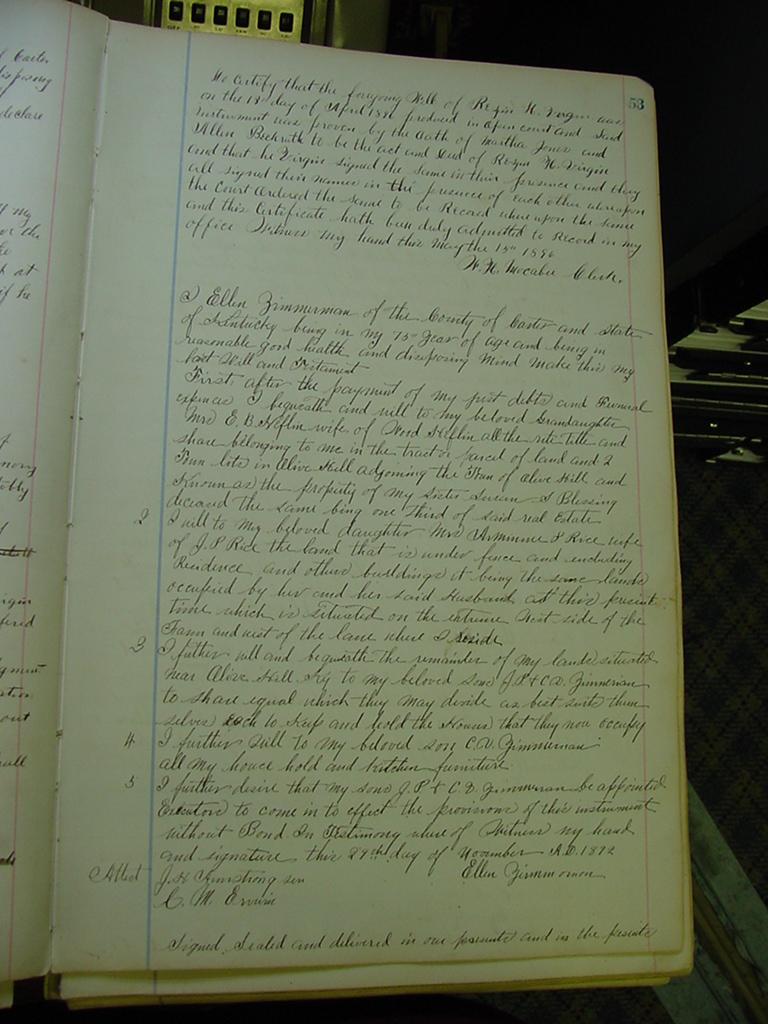 53
We Certify that the foregoing Will of Rezin H. Virgin was
on the 13th day of April 1896 produced in open court and said
instrument was proven by the Oath of Martha Jones and
Allen to be the act and deed of Rezin H. Virgin
and that he Virgin signed the same in their presence and they
all signed their names in the presence of each other whereupon
the Court ordered the same to be Record whereupon the same
and this Certificate hath been duly admitted to Record in my
office Witness my hand this May the 15th 1896
Clerk.
I Ellen Zimmerman of the County of Carter and State
of Kentucky being in my 75th Year of age and being in
reasonable good health and disposing Mind make this my
Last Will and Testament
First after the payment of my just debts and Funeral
expences I bequeath and will to my beloved Grandaughter
Mrs E. B. Heflin wife of Heflin all the rite title and
share belonging to me in the tract or parcel of land and 2
Town lots in Olive Hill adjoining the Town of Olive Hill and
Known as the property of my Sister Susan S Blessing
deceased the same being one third of said real Estate
2 I will to my beloved daughter Mrs Rice wife
of J. P Rice the land that is under fence and including
Residence and other buildings it being the same lands
occupied by her and her said Husband at this present
time which is situated on the extreme West side of the
Farm and west of the lane where I reside
3 I futher will and bequeath the remainder of my lands situated
near Olive Hill Ky to my beloved sons J. P & C. V. Zimmerman
to share equal which they may divide as best suits them
selves each to Keep and hold the Houses that they now occupy
4 I further will to my beloved son C. V. Zimmerman
all my house hold and kitchen furniture.
5 I further desire that my sons J. P & C V. Zimmerman be appointed
Executors to come in to effect the provisions of this instrument
without Bond In Testimony where of Witness my hand
and signature this 29th day of November A.D. 1892
Attest J. H Armstrong sen Ellen Zimmerman
C. M. Erwin
Signed Sealed and delivered in our presents and in the presents